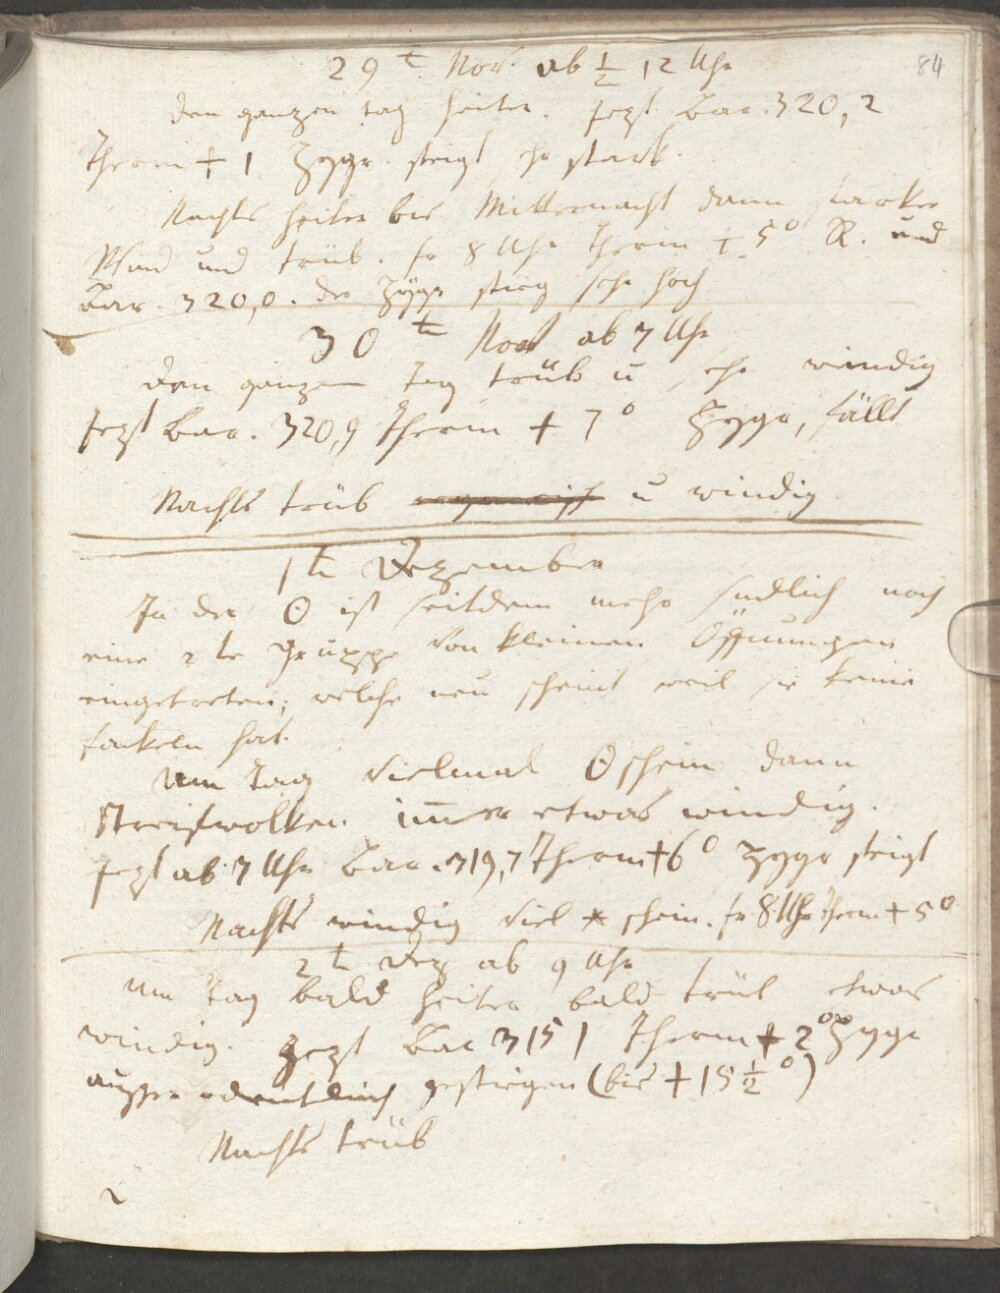 84
29t. Nov. ab ½ 12 Uhr
den ganzen tag heiter. Jezt Bar. 320,2
Therm + 1 Hygr. steigt sehr stark.
Nachts heiter bis Mitternacht dann starker
Wind und trüb. fr 8 Uhr Therm + 5° R. und
Bar. 320,0. der Hÿgr stieg sehr hoch
30 t Nov ab 7 Uhr
den ganzen tag trüb u sehr windig
Jezt Bar. 320,9 Therm + 7° Hygr, fällt
Nachts trüb u windig
1t Dezember
In der ʘ ist seitdem mehr südlich noch
eine 2te Gruppe von kleinen Öffnungen
eingetreten, welche neu scheint weil sie keine
fackeln hat.
Am tag vielmal ʘschein dann
Streifwolken im̄er etwas windig.
Jezt ab 7 Uhr Bar. 319,7 Therm +6° Hygr steigt
Nachts windig viel * schein. fr 8 Uhr Therm + 5°
2t Dez ab 9 Uhr
Am tag bald heiter bald trüb etwas
windig. Jezt Bar 315 1 Therm + 2° Hygr
außerordentlich gestiegen (bis + 15 ½°)
Nachts trüb